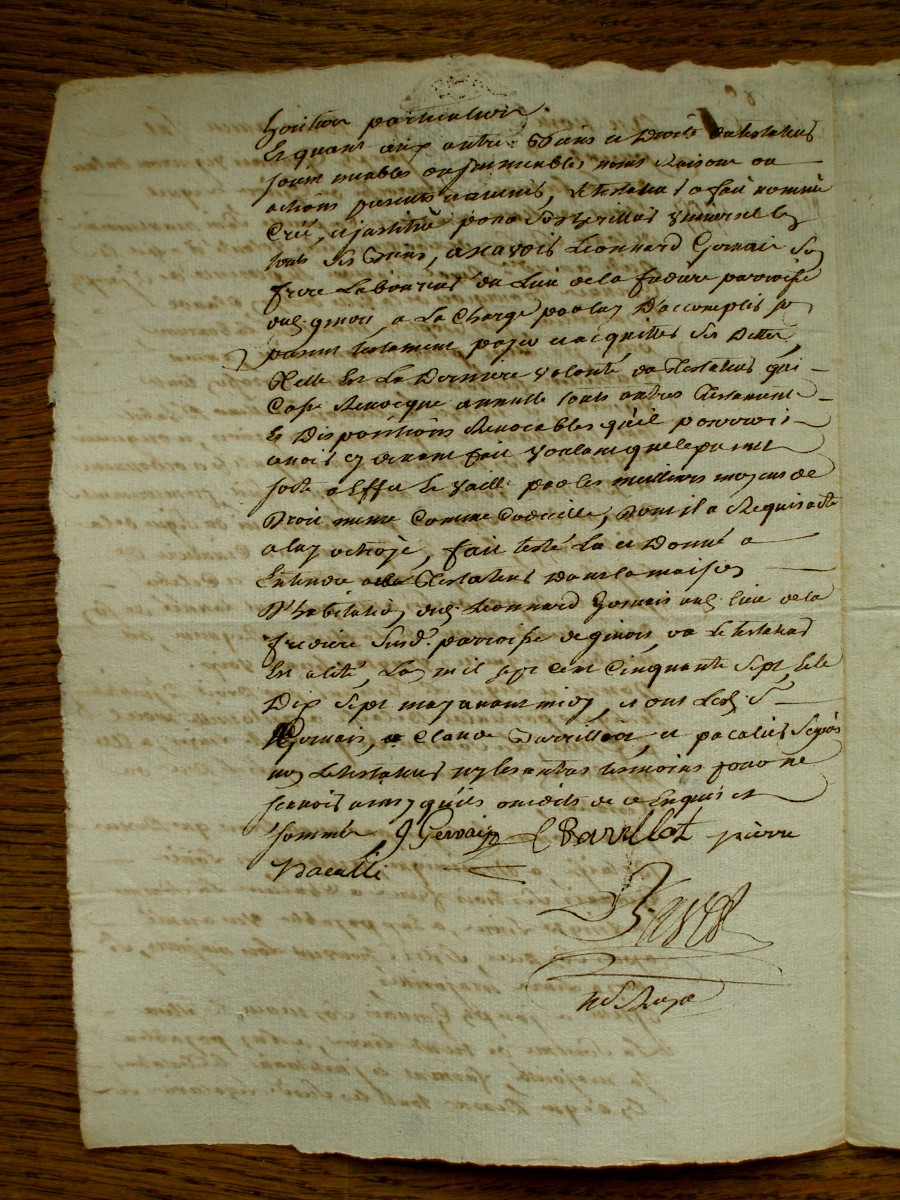 heritier particulier.
Et quant aux autres Biens et Droits du testateur
soient meubles ou immeubles noms Raisons ou
actions presents et avenirs, le testateur a fait nommé
Créé, et jnstitué pour son heritier universel en
touts ses Biens, a scavoir Leonnard Gervais son
frere Laboureur du Lieu de la paroisse
dud. ginois, a La Charge par luy D'accomplir son
present testament payer et acquitter ses Dettes,
Telle Est La Derniere volonté du Testateur qui
Casse Revocque annulle touts autres Testaments
Et Dispositions Revocables qu'il pourroit
avoir cy devant fait voulant que le present
sorte a Effet Et vaille par les meilleurs moyens de
Droit mesme Comme Codicille, Dont il a Requis acte
a luy octroyé, fait testé Lu et Donné a
Entendre au Testateur Dans la maison
D'habitation dud. Leonnard Gervais aud. lieu de la
susd. parroisse de ginois, ou le testateur
Est alité, L'an mil sept cent Cinquante Sept, et le
Dix Sept may avant midy, et ont Lesd. Srs
Gervais, et Claude Barrillot, et pacalier signés
non le testateur ny les autres tesmoins pour ne
scavoir ainsy qu'ils ont dits de ce Enquis et
sommés, J Gervais C Barillot pierre
Pacalli